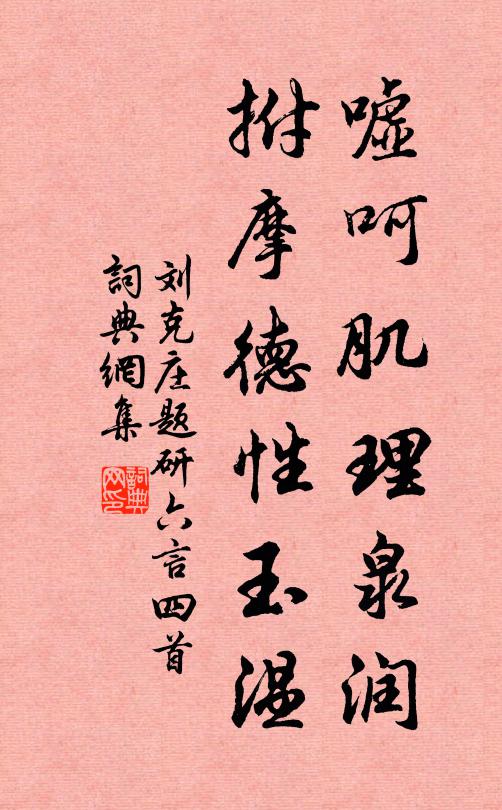 嘘呵肌理泉润
拊摩德性玉温
刘克庄题研六言四首
詞典網集
詞典网印